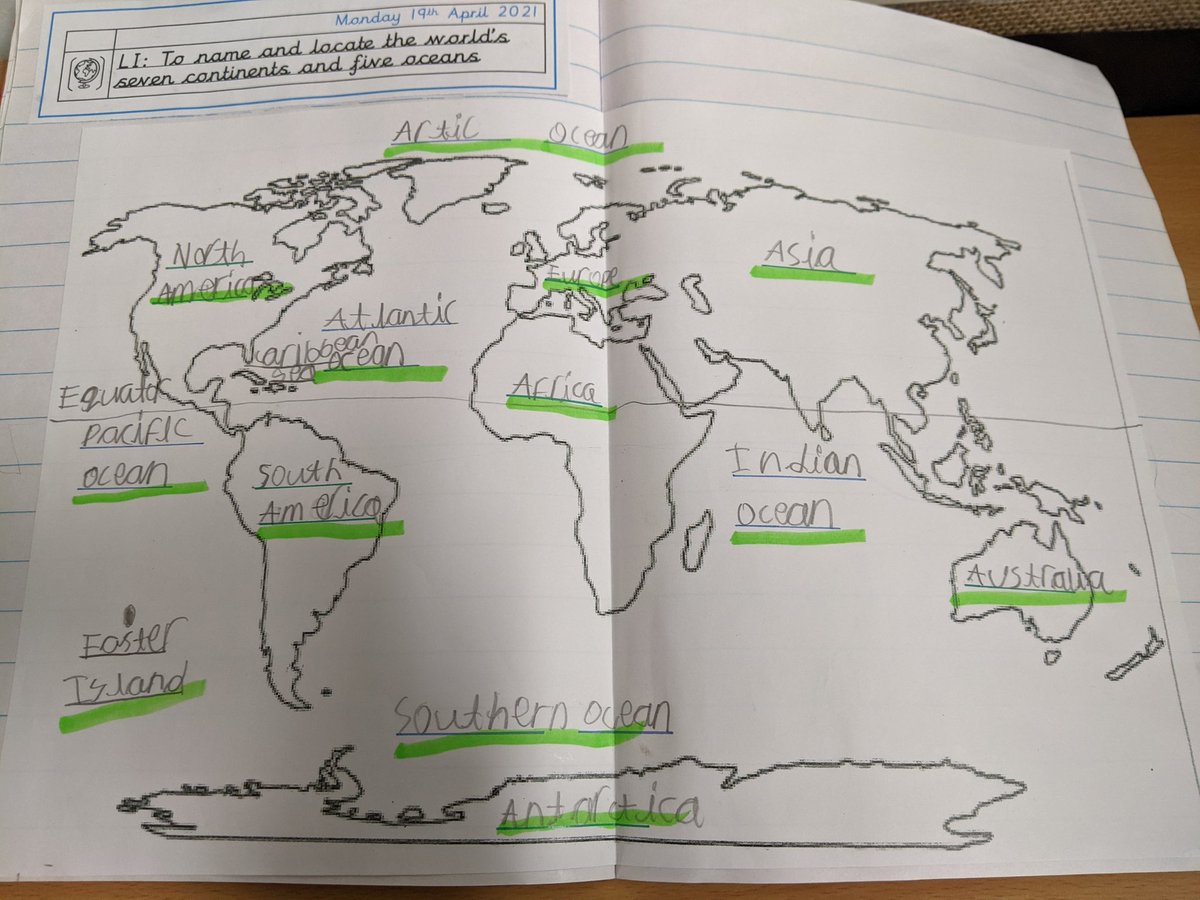 Monday 19th April 2021
LI: To name and locate the world's
seven continents and five oceans
Artic Ocean
North
America
Asia
Europe
Atlantic
ocean
Caribbean
sea
Africa
Equator
pacific
ocean
Indian
ocean
South
America
Australia
Easter
Island
Southern ocean
Antarctica